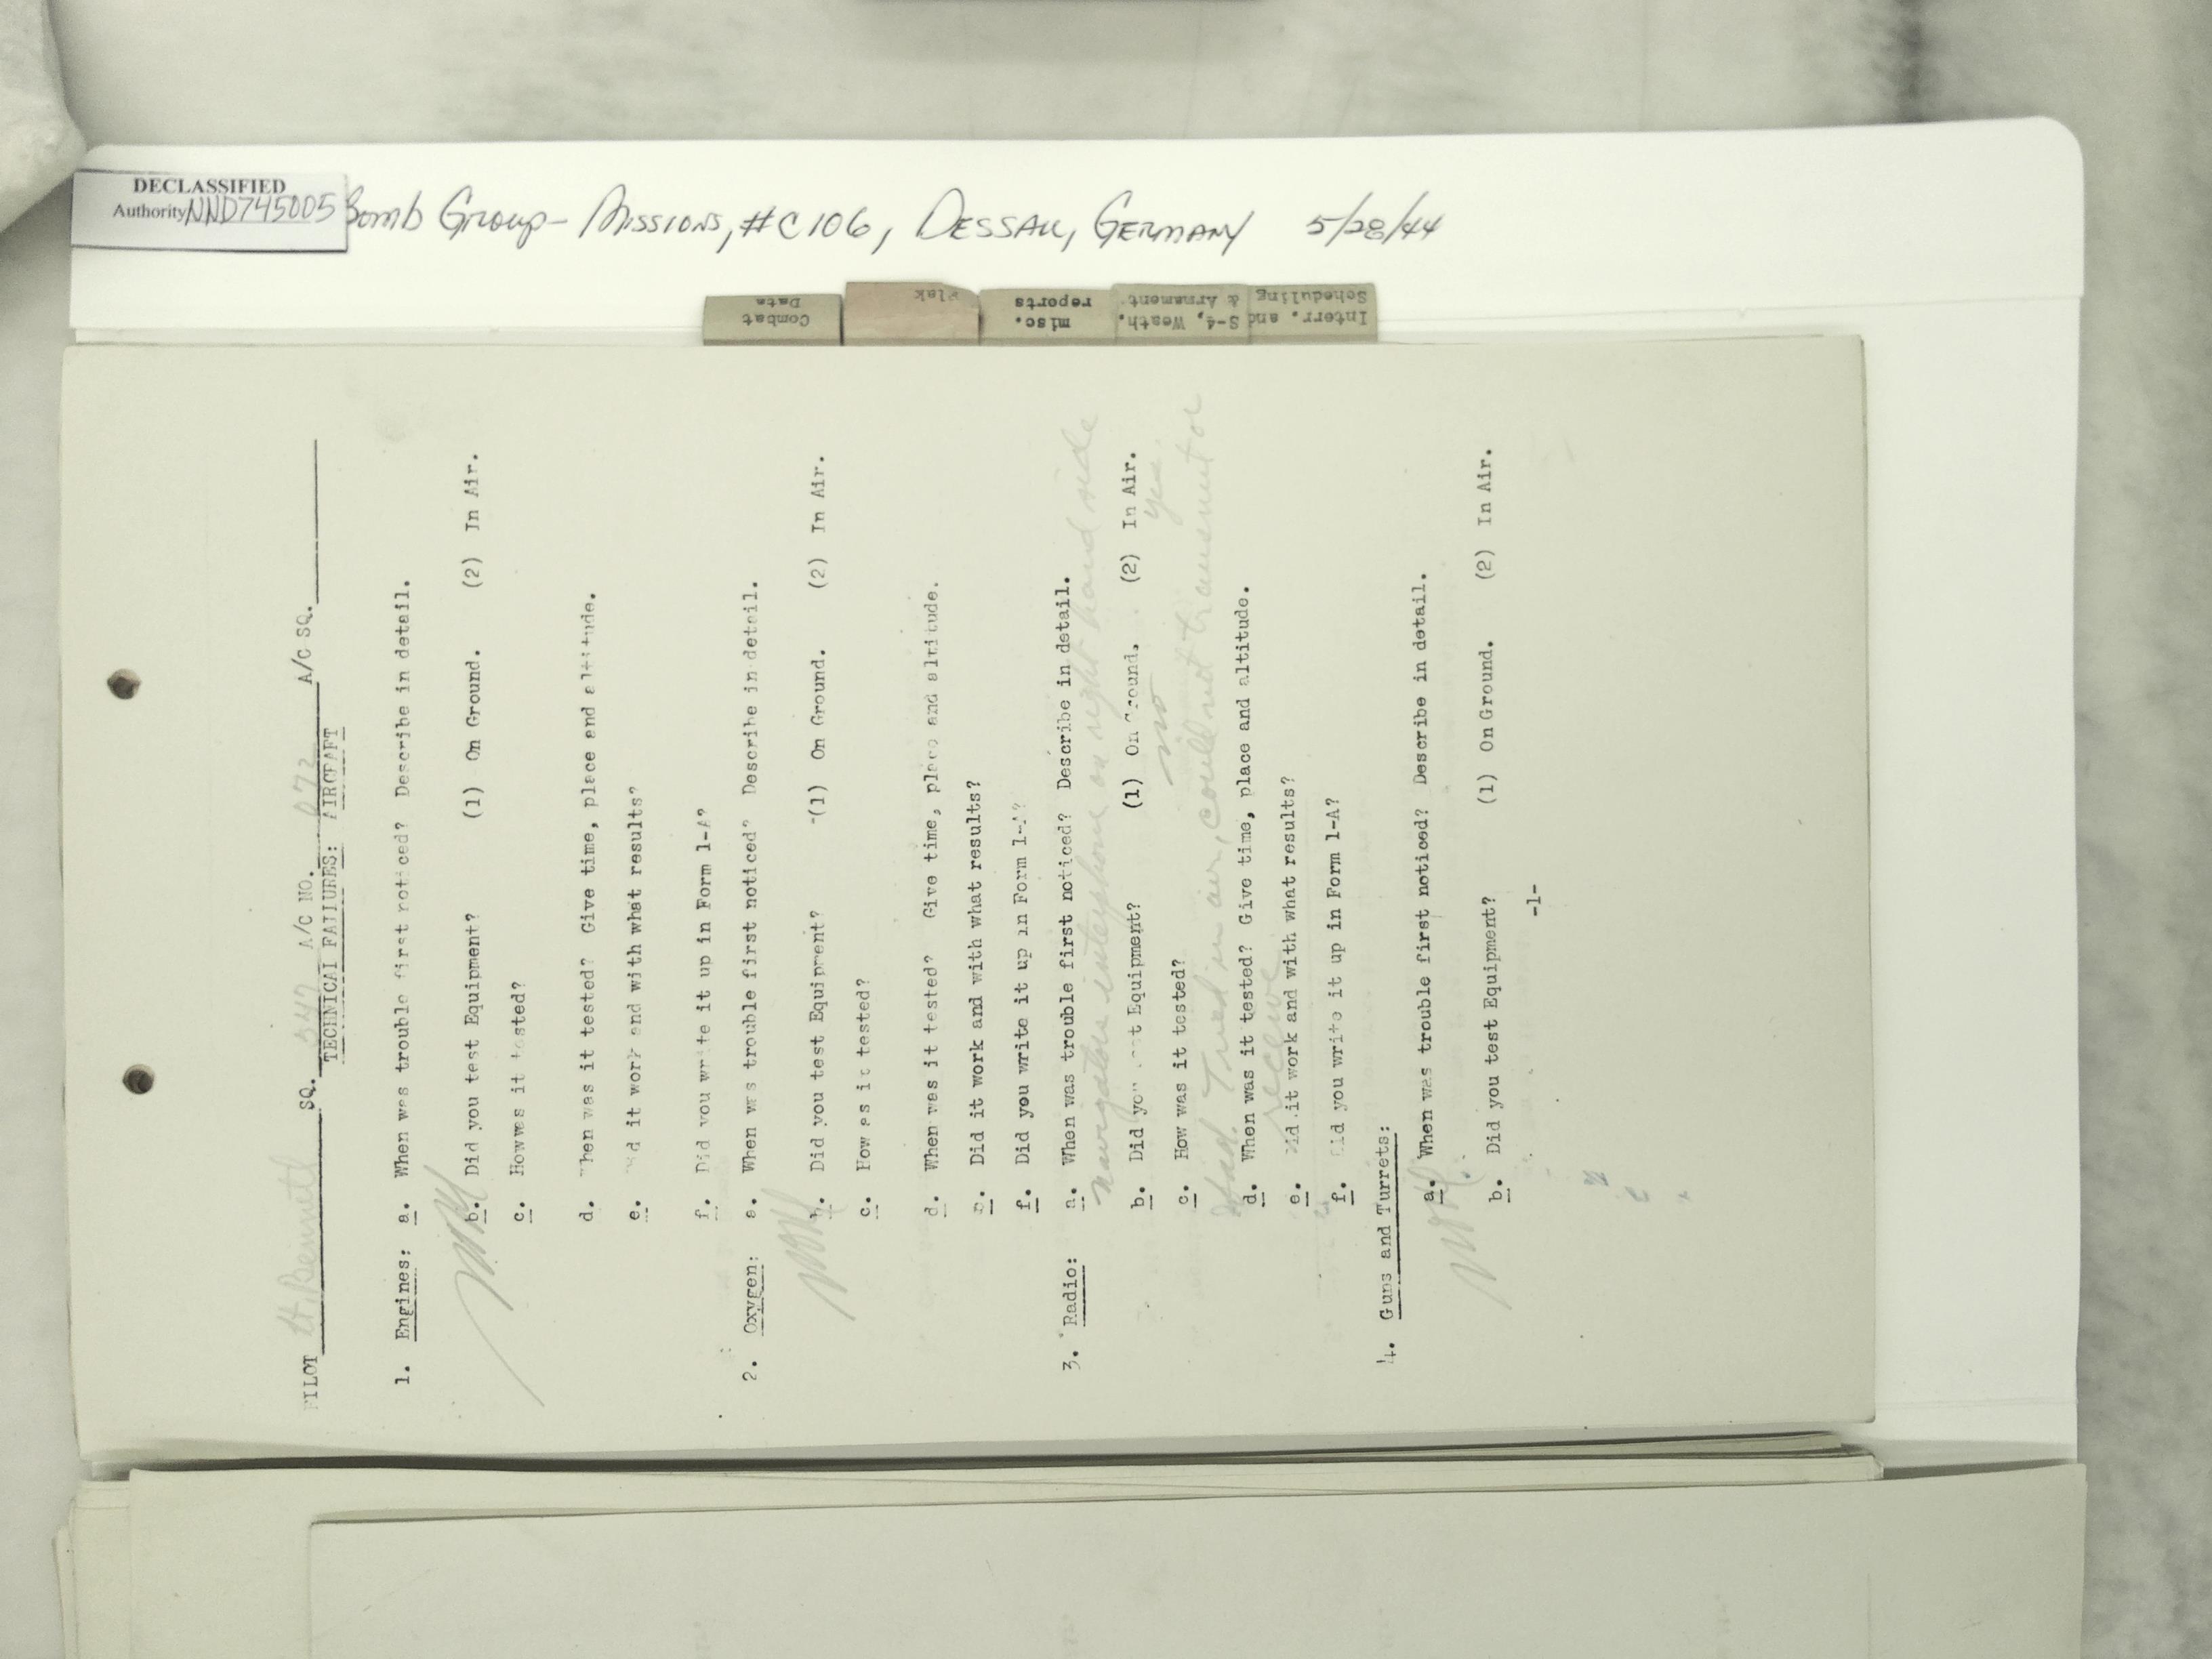 DECLASSIFIED
Authority NND745005
Bomb Group - Missions, #C106, Dessau, Germany 5/28/44
Combat Data
Flak
misc. reports
S-4, Weath. & Armament
Interr. and Scheduling
PILOT Lt. Bennett SQ. A/C NO. A/C SQ.
TECHNICAL FAILURES: AIRCRAFT
1. Engines: a. When was trouble first noticed? Describe in detail.
b. Did you test Equipment? (1) On Ground. (2) In Air.
c. How was it tested?
d. When was it tested? Give time, place and altitude.
e. Did it work and with what results?
f. Did you write it up in Form 1-A?
2. Oxygen: a. When was trouble first noticed? Describe in detail.
b. Did you test Equipment? (1) On Ground. (2) In Air.
c. How as it tested?
d. When was it tested? Give time, place and altitude.
e. Did it work and with what results?
f. Did you write it up in Form 1-A?
3. Radio: a. When was trouble first noticed? Describe in detail.
navigators interphone on right hand side
b. Did you test Equipment? (1) On Ground. (2) In Air.
no yes
c. How was it tested?
Tried in air, could not transmit or
d. When was it tested? Give time, place and altitude.
receive
e. Did it work and with what results?
f. Did you write it up in Form 1-A?
4. Guns and Turrets:
a. When was trouble first noticed? Describe in detail.
b. Did you test Equipment? (1) On Ground. (2) In Air.
-1-